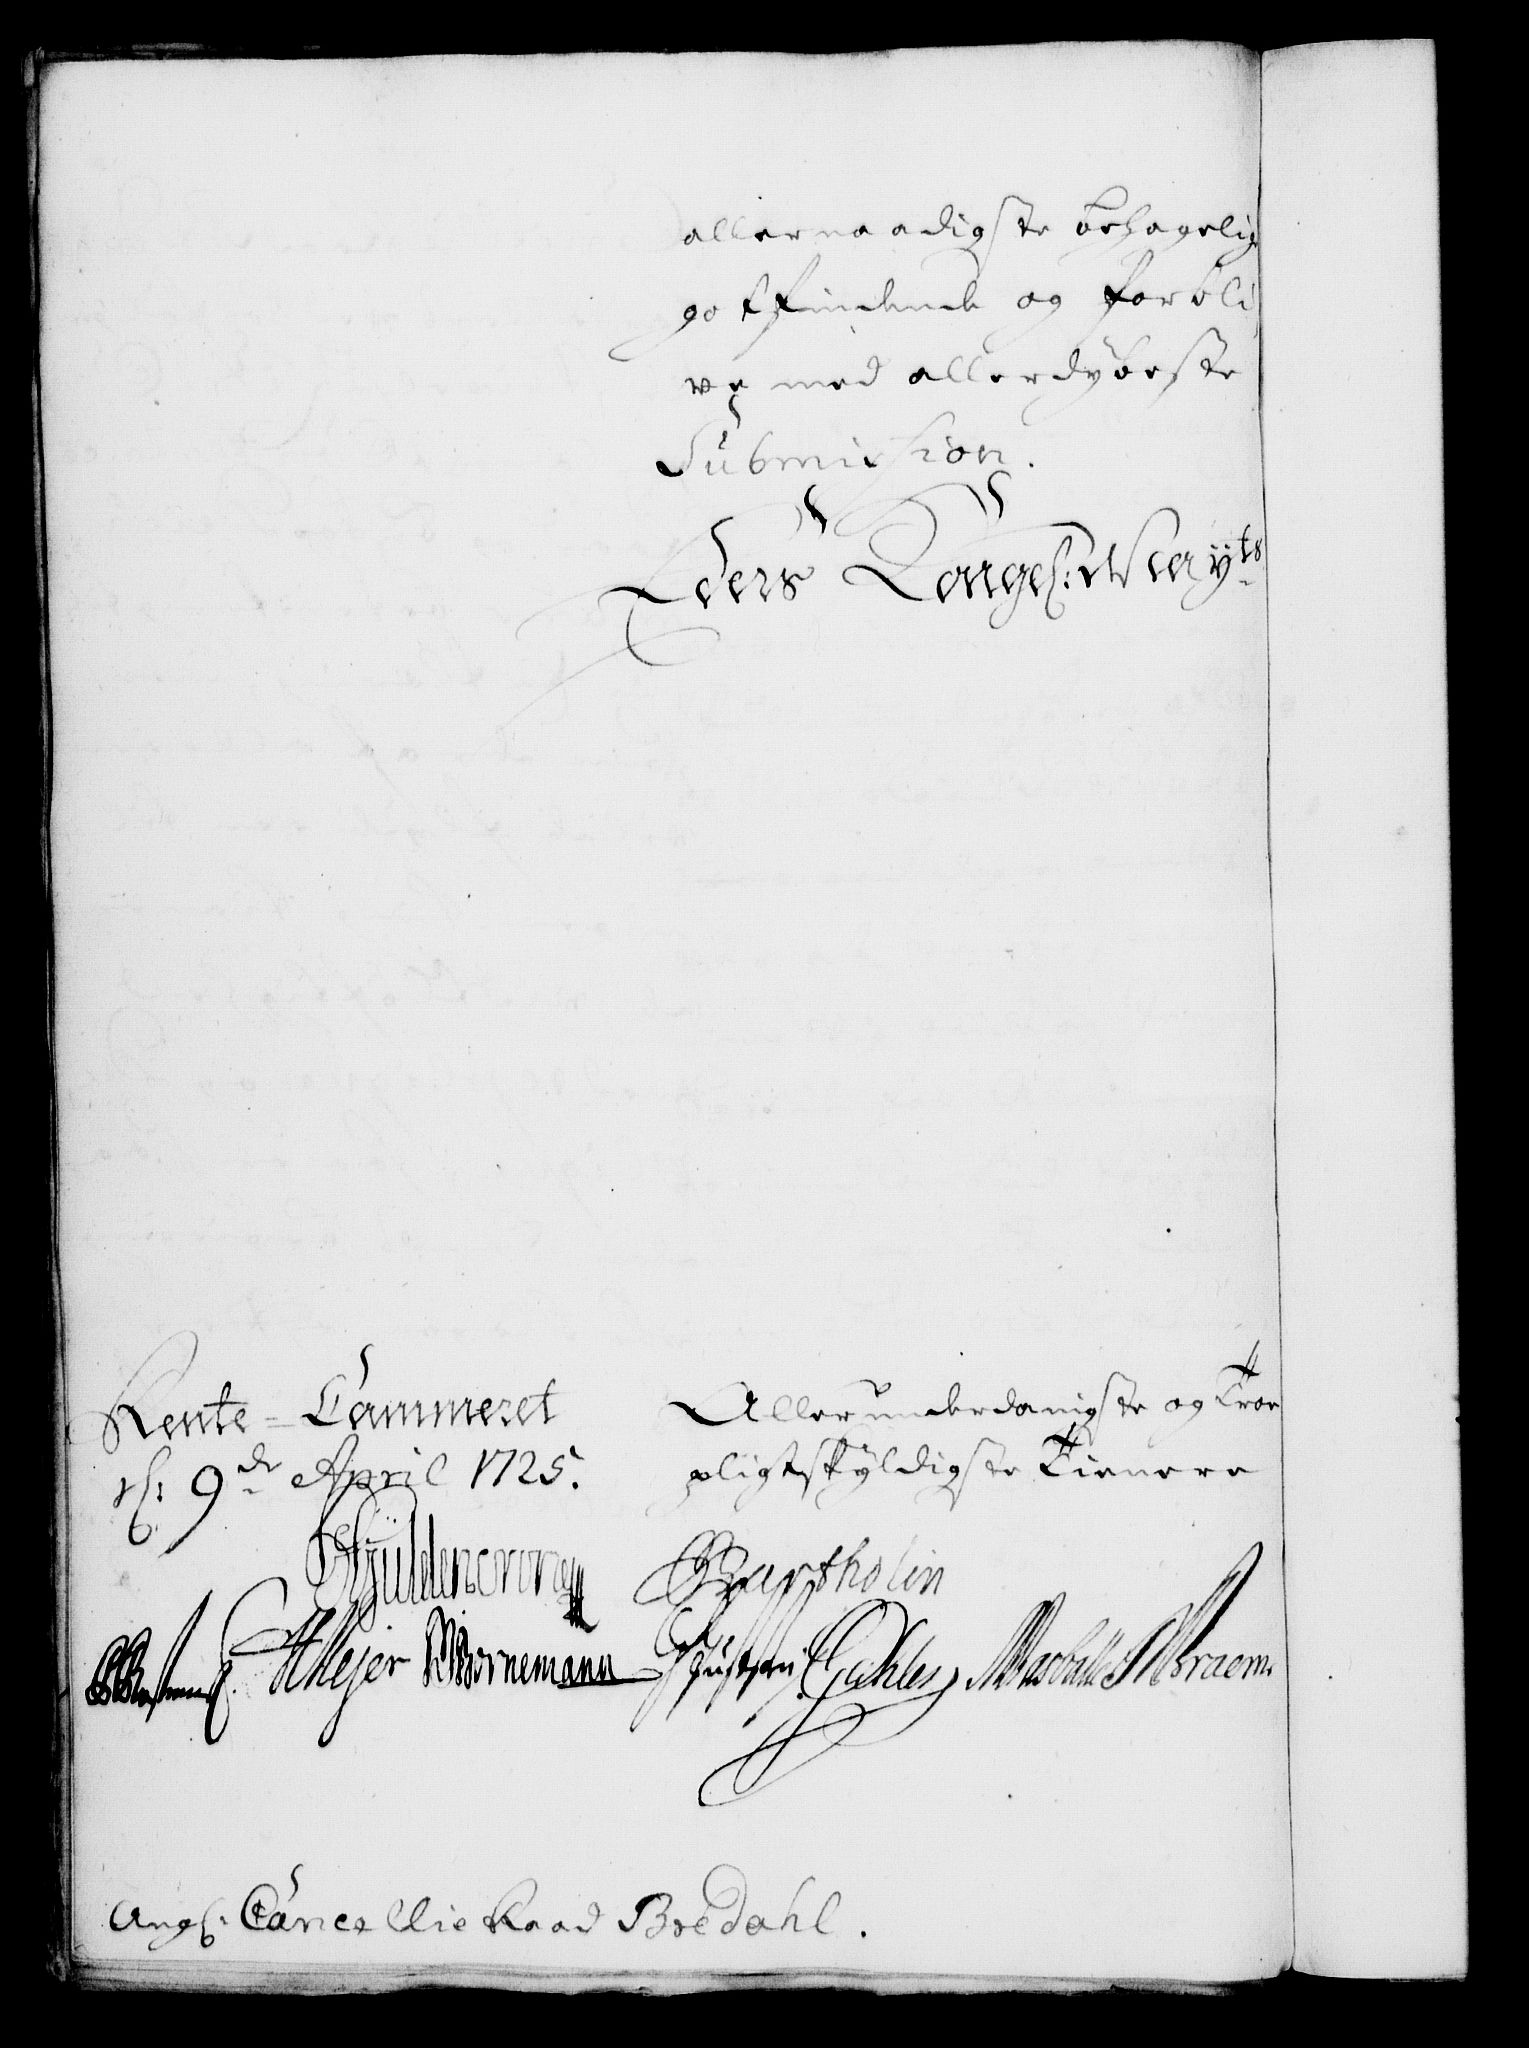 allernaadigste behagelig
gotfindende og forbli
ve med allerdybeste
Submission.
Eders Kongel: Mayts
Rente-Cammeret
d: 9de April 1725.
Allerunderdanigste og Troe
pligtskyldigste Tienere
Güldencrone
Bartholin
HMejer Bornemann
Ang: Cancellie Raad Bredahl.